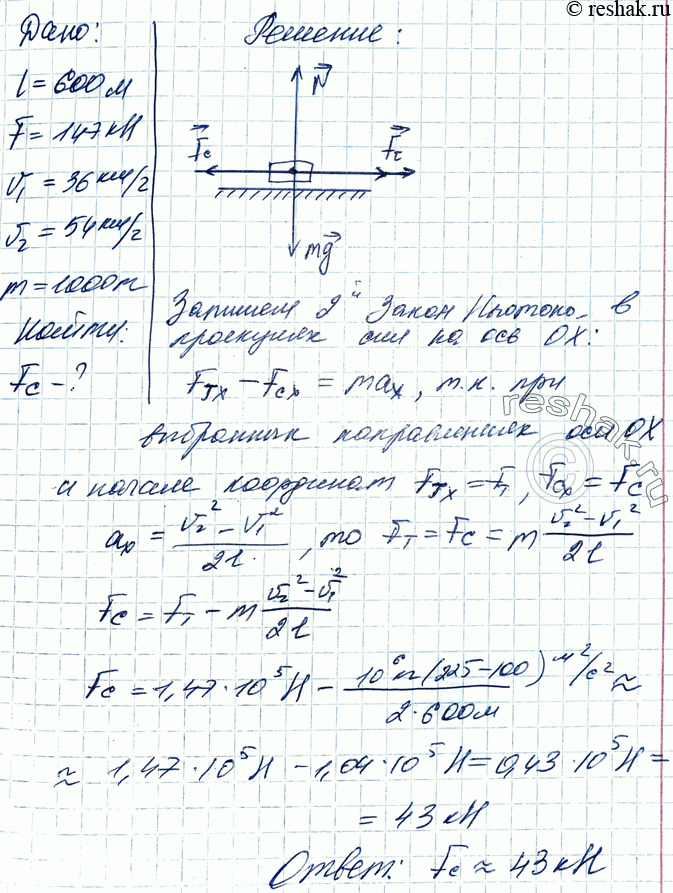 © reshak.ru
Дано:
l = 600 м
F = 147 кН
v₁ = 36 км/г
v₂ = 54 км/г
m = 1000 т
Найти:
Fc - ?
Решение:
N
Fc
Fт
mg
Запишем 2й Закон Ньютона в
проекциях сил на ось OX:
Fтx − Fcx = maₓ, т.к. при
выбранных направлениях оси OX
и начале координат Fтx = Fт, Fcx = Fc
aₓ = (v₂² − v₁²)/2l, то Fт = Fc = m (v₂² − v₁²)/2l
Fc = Fт − m (v₂² − v₁²)/2l
Fc = 1,47·10⁵ Н − 10⁶ кг (225−100) м²/с² / 2·600 м ≈
≈ 1,47·10⁵ Н − 1,04·10⁵ Н = 0,43·10⁵ Н =
= 43 кН
Ответ: Fc ≈ 43 кН
reshak.ru
©